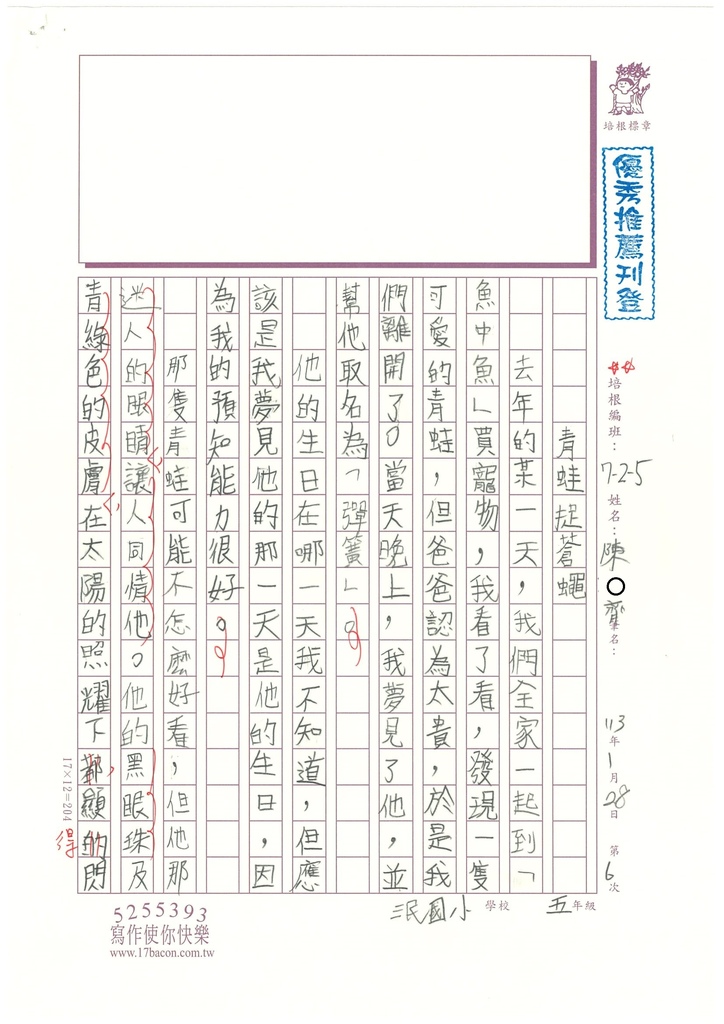 培根標章
優秀推薦刊登
培根編班：7-2-5 姓名：陳○齊 筆名：
113年1月28日 第6次
五年級 三民國小 學校
青蛙捉蒼蠅
去年的某一天，我們全家一起到「
魚中魚」買寵物，我看了看，發現一隻
可愛的青蛙，但爸爸認為太貴，於是我
們離開了。當天晚上，我夢見了他，並
幫他取名為「彈簧」。
他的生日在哪一天我不知道，但應
該是我夢見他的那一天是他的生日，因
為我的預知能力很好。
那隻青蛙可能不怎麼好看，但他那
迷人的眼睛讓人同情他。他的黑眼珠及
青綠色的皮膚在太陽的照耀下，都顯的閃
得
17×12=204
5255393
寫作使你快樂
www.17bacon.com.tw